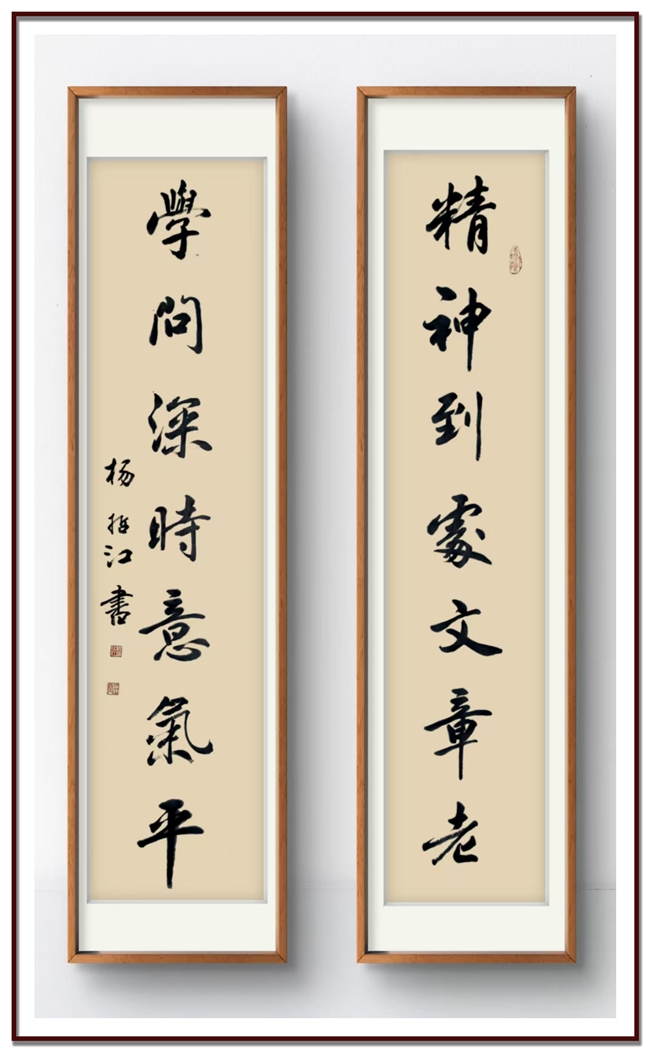 精神到處文章老
學問深時意氣平
杨维江書